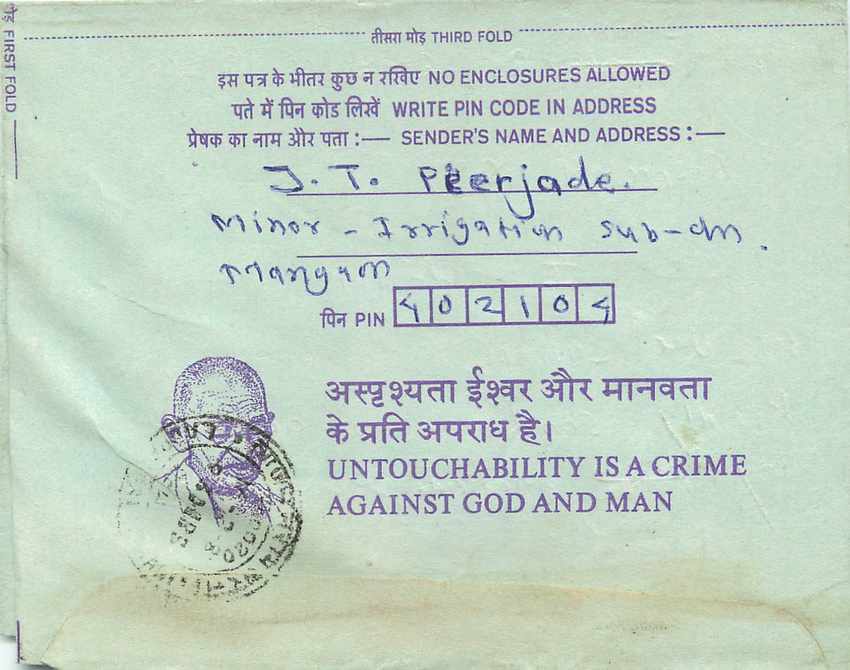 तीसरा मोड़ THIRD FOLD
इस पत्र के भीतर कुछ न रखिए NO ENCLOSURES ALLOWED
पते में पिन कोड लिखें WRITE PIN CODE IN ADDRESS
प्रेषक का नाम और पता :— SENDER'S NAME AND ADDRESS :—
J. T. Peerjade.
Minor - Irrigation sub-dn.
Mangaon
पिन PIN 402104
अस्पृश्यता ईश्वर और मानवता
के प्रति अपराध है।
UNTOUCHABILITY IS A CRIME
AGAINST GOD AND MAN
FIRST FOLD